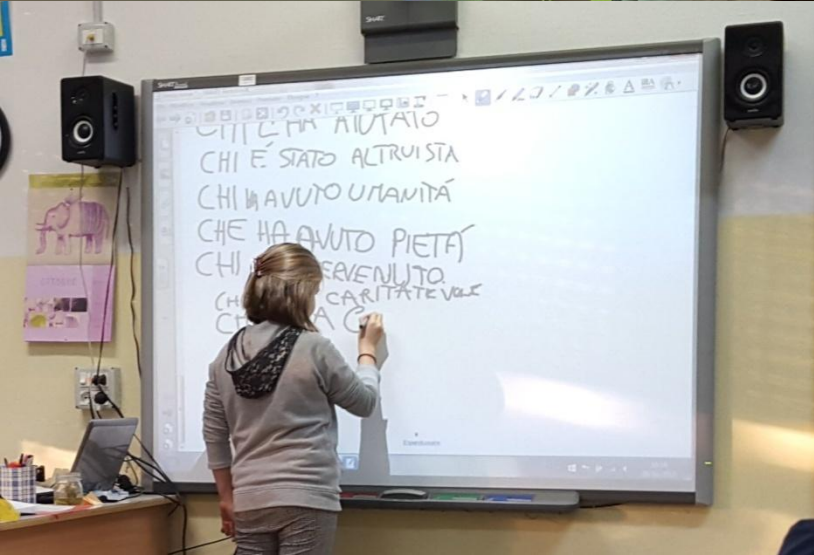 SMART
SMART
CHI L'HA AIUTATO
CHI É STATO ALTRUISTA
CHI HA AVUTO UMANITÁ
CHE HA AVUTO PIETÁ
CHI ERVENUTO
CH CARITATEVOLE
CH A C